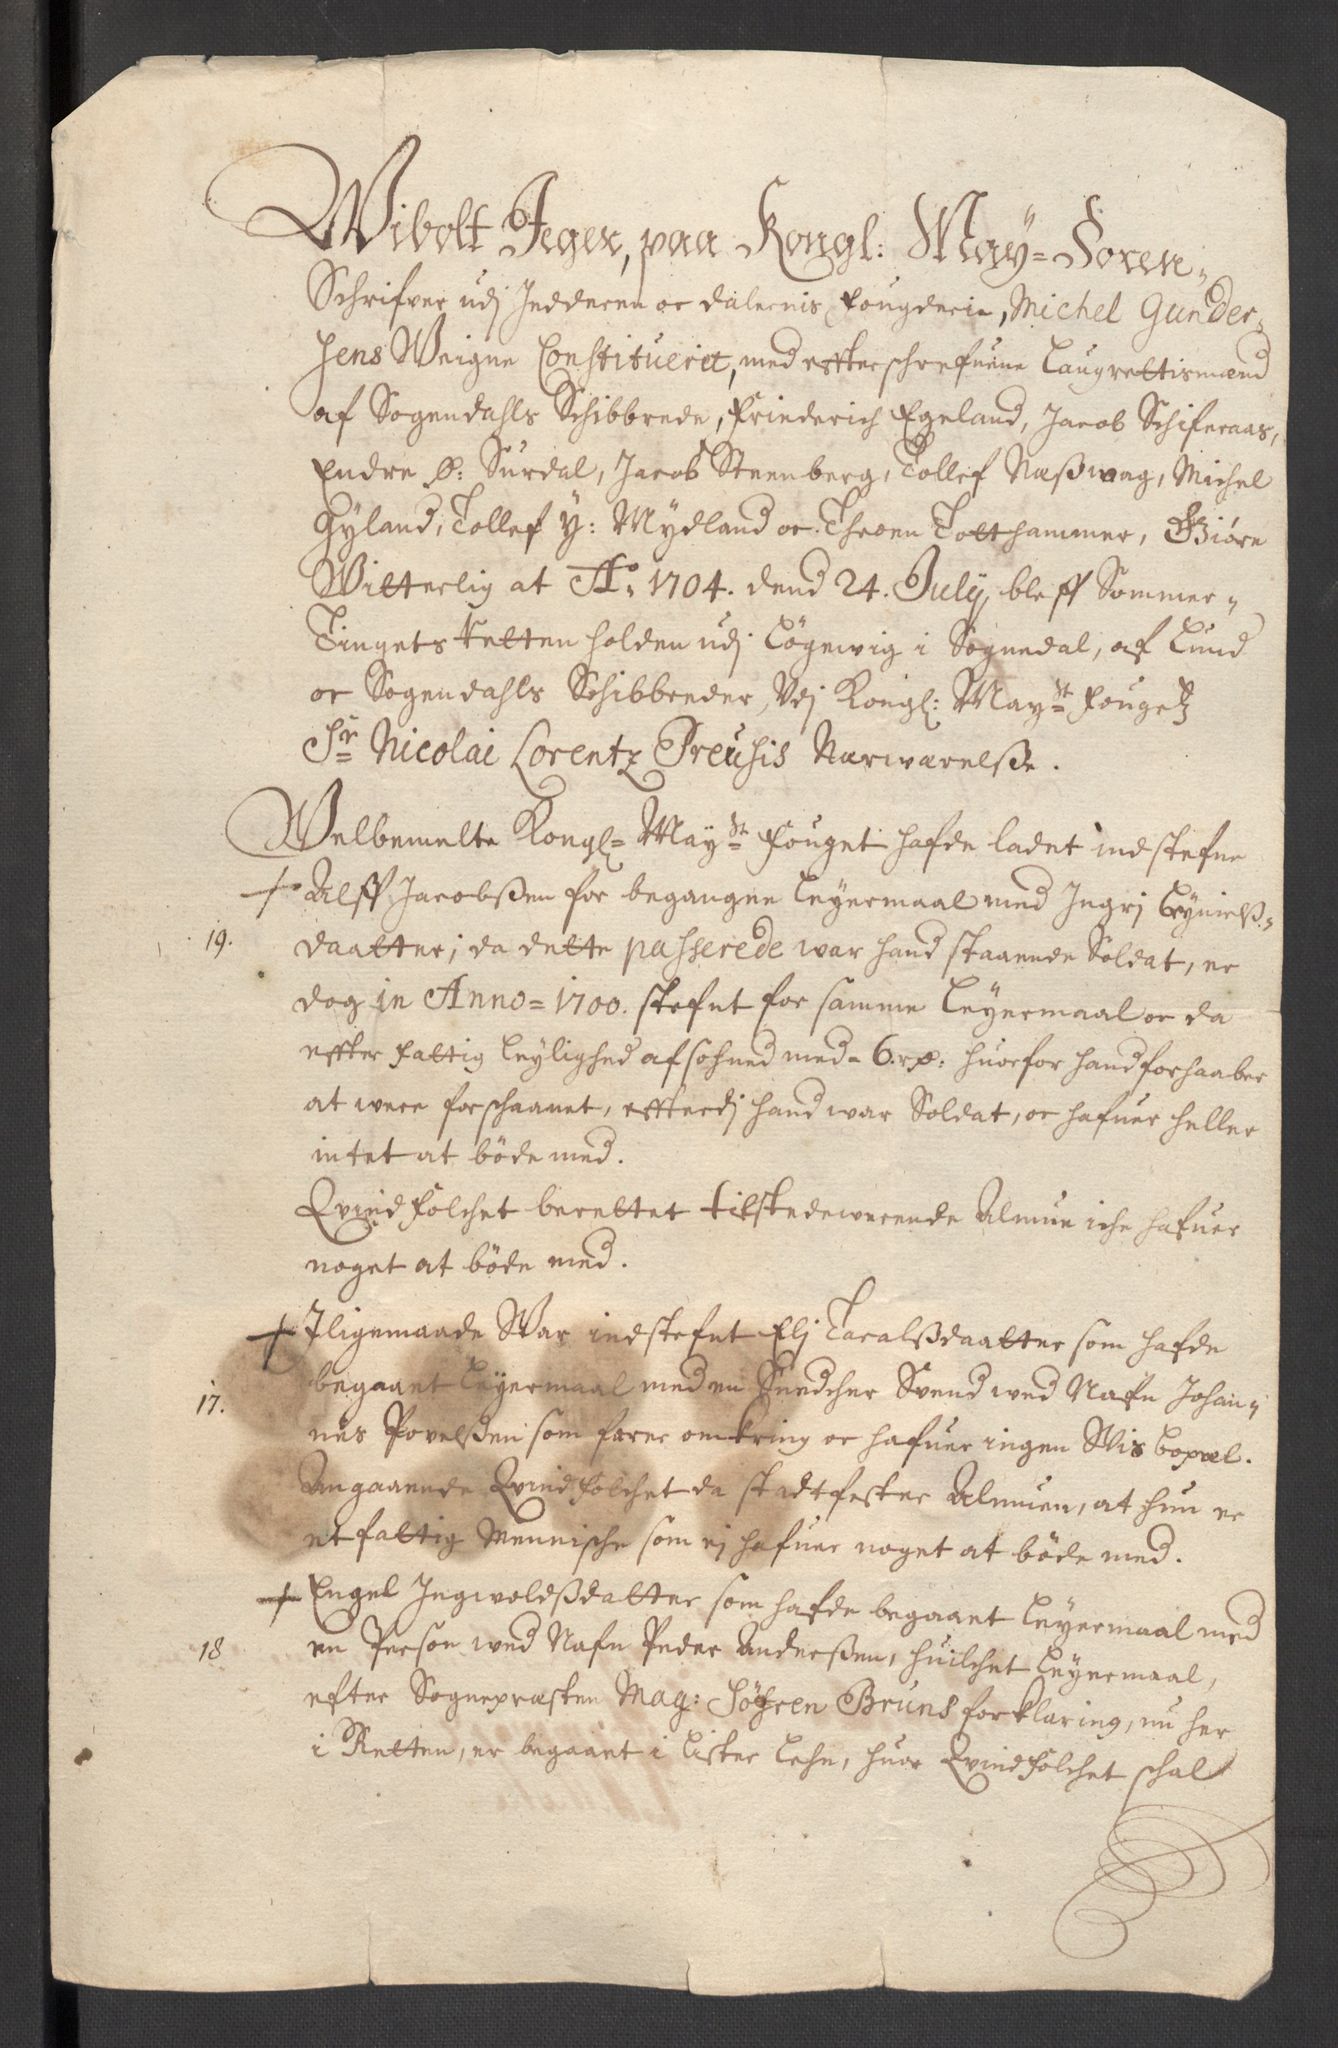 Wibolt Jeger, paa Kongl: May= Soren-
Schrifver udj Jedderen oc dalernis fougderie, Michel Gunder-
sens Weigne Constituerit, med effterschrefuene Laugrettismænd
af Sogendahls Schibbrede, Friederich Egeland, Jacob Schiferaas,
Endre Ø: Surdal, Jacob Steenberg, Tollef Næsswog, Michel
Gyland, Tollef Y: Mydland oc Throen Totthammer, Giöre
Witterlig at Ao. 1704. dend 24. July, bleff Sommer-
Tingets Retten holden udj Lögewig i Sognedal, af Lund
oc Sogendahls Schibbreder, Vdj Kongl: Mayst: fougetz
Sr Nicolai Lorentz Preusis Nærwærelsse.
Welbemelte Kongl= Mayst: fouget hafde ladet indstefne
+ Alff Jacobssen for begangne Leyermaal med Ingrj
19. daatter; da dette passerede war hand staaende Soldat, er
dog in Anno= 1700. stefnt for samme Leyermaal oc da
effter fattig Leylighed afsohned med- 6. rx: huorfor hand forhaaber
at were forschaanet, effterdj hand war Soldat, oc hafuer heller
intet at böde med.
Qvindfolchet berettet tilstedewerende Almue iche hafuer
noget at böde med.
+ Iligemaade War indstefnt Elj Taralssdaatter som hafde
17. begaaet Leyermaal med en Snedcher Svend wed Nafn Johan-
nes Povelssen som farer omkring oc hafuer ingen Wis boxæl.
Angaaende Qvindfolchet da stadtfester Almuen, at hun er
et fattig Mennische som ej hafuer noget at böde med.
+ Engel Ingwoldssdatter som hafde begaaet Leyermaal med
18 en Person wed Nafn Peder Anderssen, huilchet Leyermaal,
efter Sognepræsten Mag: Söfren Bruns forklaring, nu her
i Retten, er begaaet i Lister Lehn, huor Qvindfolchet schal